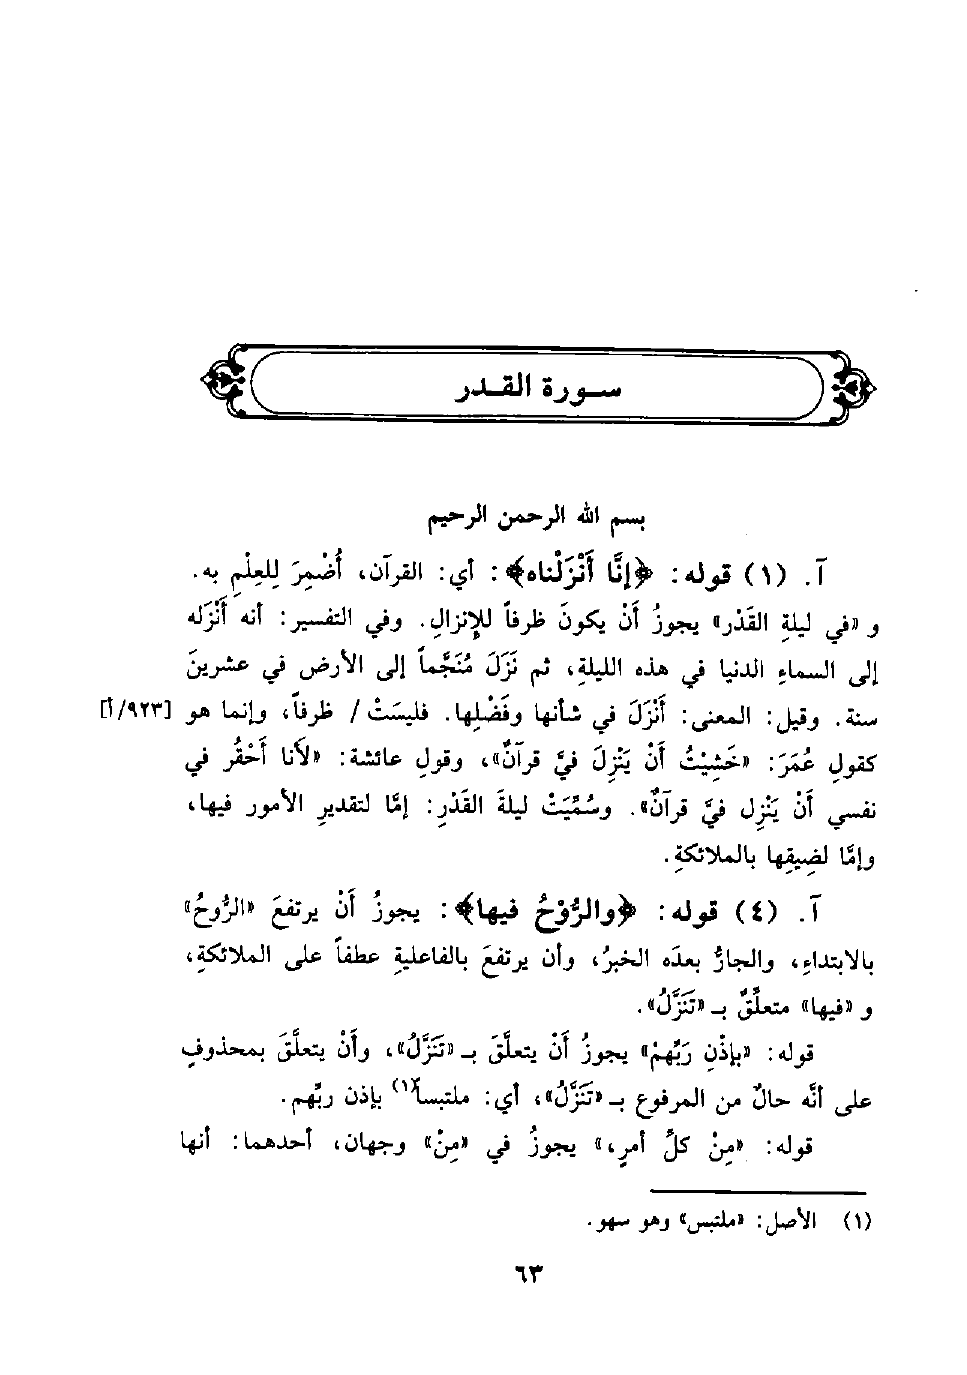 سورة القدر
بسم الله الرحمن الرحيم
آ. (١) قوله: ﴿إنَّا أَنْزَلْناه﴾: أي: القرآن، أُضْمِرَ لِلعِلْمِ به.
و «في ليلةِ القَدْر» يجوزُ أَنْ يكونَ ظرفاً للإِنزالِ. وفي التفسير: أنه أَنْزَله
إلى السماءِ الدنيا في هذه الليلةِ، ثم نَزَلَ مُنَجَّماً إلى الأرض في عشرينَ
سنة. وقيل: المعنى: أَنْزَلَ في شأنها وفَضْلِها. فليسَتْ / ظرفاً، وإنما هو [٩٢٣/أ]
كقولِ عُمَرَ: «خَشِيْتُ أَنْ يَنْزِلَ فيَّ قرآنٌ»، وقولِ عائشة: «لأَنا أَحْقَرُ في
نفسي أَنْ يَنْزِل فيَّ قرآنٌ». وسُمِّيَتْ ليلةَ القَدْرِ: إمَّا لتقديرِ الأمور فيها،
وإمَّا لضِيقِها بالملائكةِ.
آ. (٤) قوله: ﴿والرُّوْحُ فيها﴾: يجوزُ أَنْ يرتفعَ «الرُّوحُ»
بالابتداءِ، والجارُّ بعدَه الخبرُ، وأن يرتفعَ بالفاعليةِ عطفاً على الملائكةِ،
و «فيها» متعلِّقٌ بـ «تَنَزَّلُ».
قوله: «بإذْنِ رَبِّهمْ» يجوزُ أَنْ يتعلَّقَ بـ «تَنَزَّلُ»، وأَنْ يتعلَّقَ بمحذوفٍ
على أنَّه حالٌ من المرفوع بـ «تَنَزَّلُ»، أي: ملتبساً(١) بإذن ربِّهم.
قوله: «مِنْ كلِّ أمرٍ،» يجوزُ في «مِنْ» وجهان، أحدهما: أنها
(١) الأصل: «ملتبس» وهو سهو.
٦٣